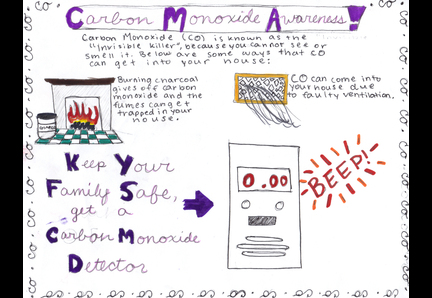 Carbon Monoxide Awareness!
Carbon Monoxide (CO) is known as the
"Invisible killer", because you cannot see or
smell it. Below are some ways that CO
can get into your house:
Burning charcoal
gives off carbon
monoxide and the
fumes can get
trapped in your
house.
CO can come into
your house due
to faulty ventilation.
Keep Your
Family Safe,
get a
Carbon Monoxide
Detector
0.00
BEEP!